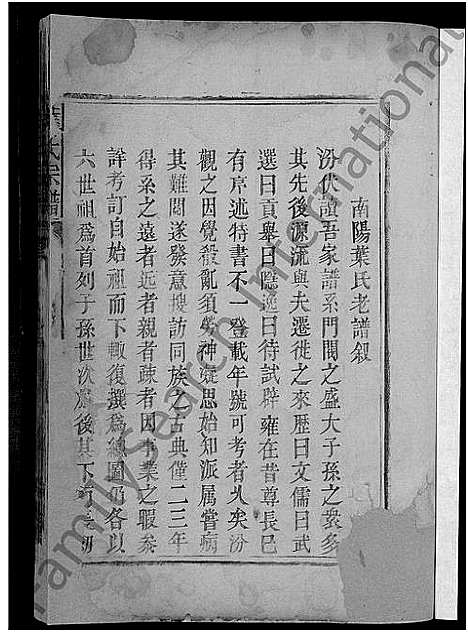 南陽葉氏老譜敘
汾伏讀吾家譜系門閥之盛大子孫之衆多
其先後源流與夫遷徙之來歷曰文儒曰武
選曰貢舉曰隱逸曰待試辟雍在昔尊長已
有序述特書不一登載年號可考者久矣汾
觀之因覺殽亂須勞神凝思始知派属嘗病
其難閱遂發意搜訪同族之古典僅二三年
得系之遠者近者親者疎者因事業之暇參
詳考訂自始祖而下輙復撰爲線圖仍各以
六世祖爲首列子孫世次於後其下
葉氏宗譜
FamilySearch International